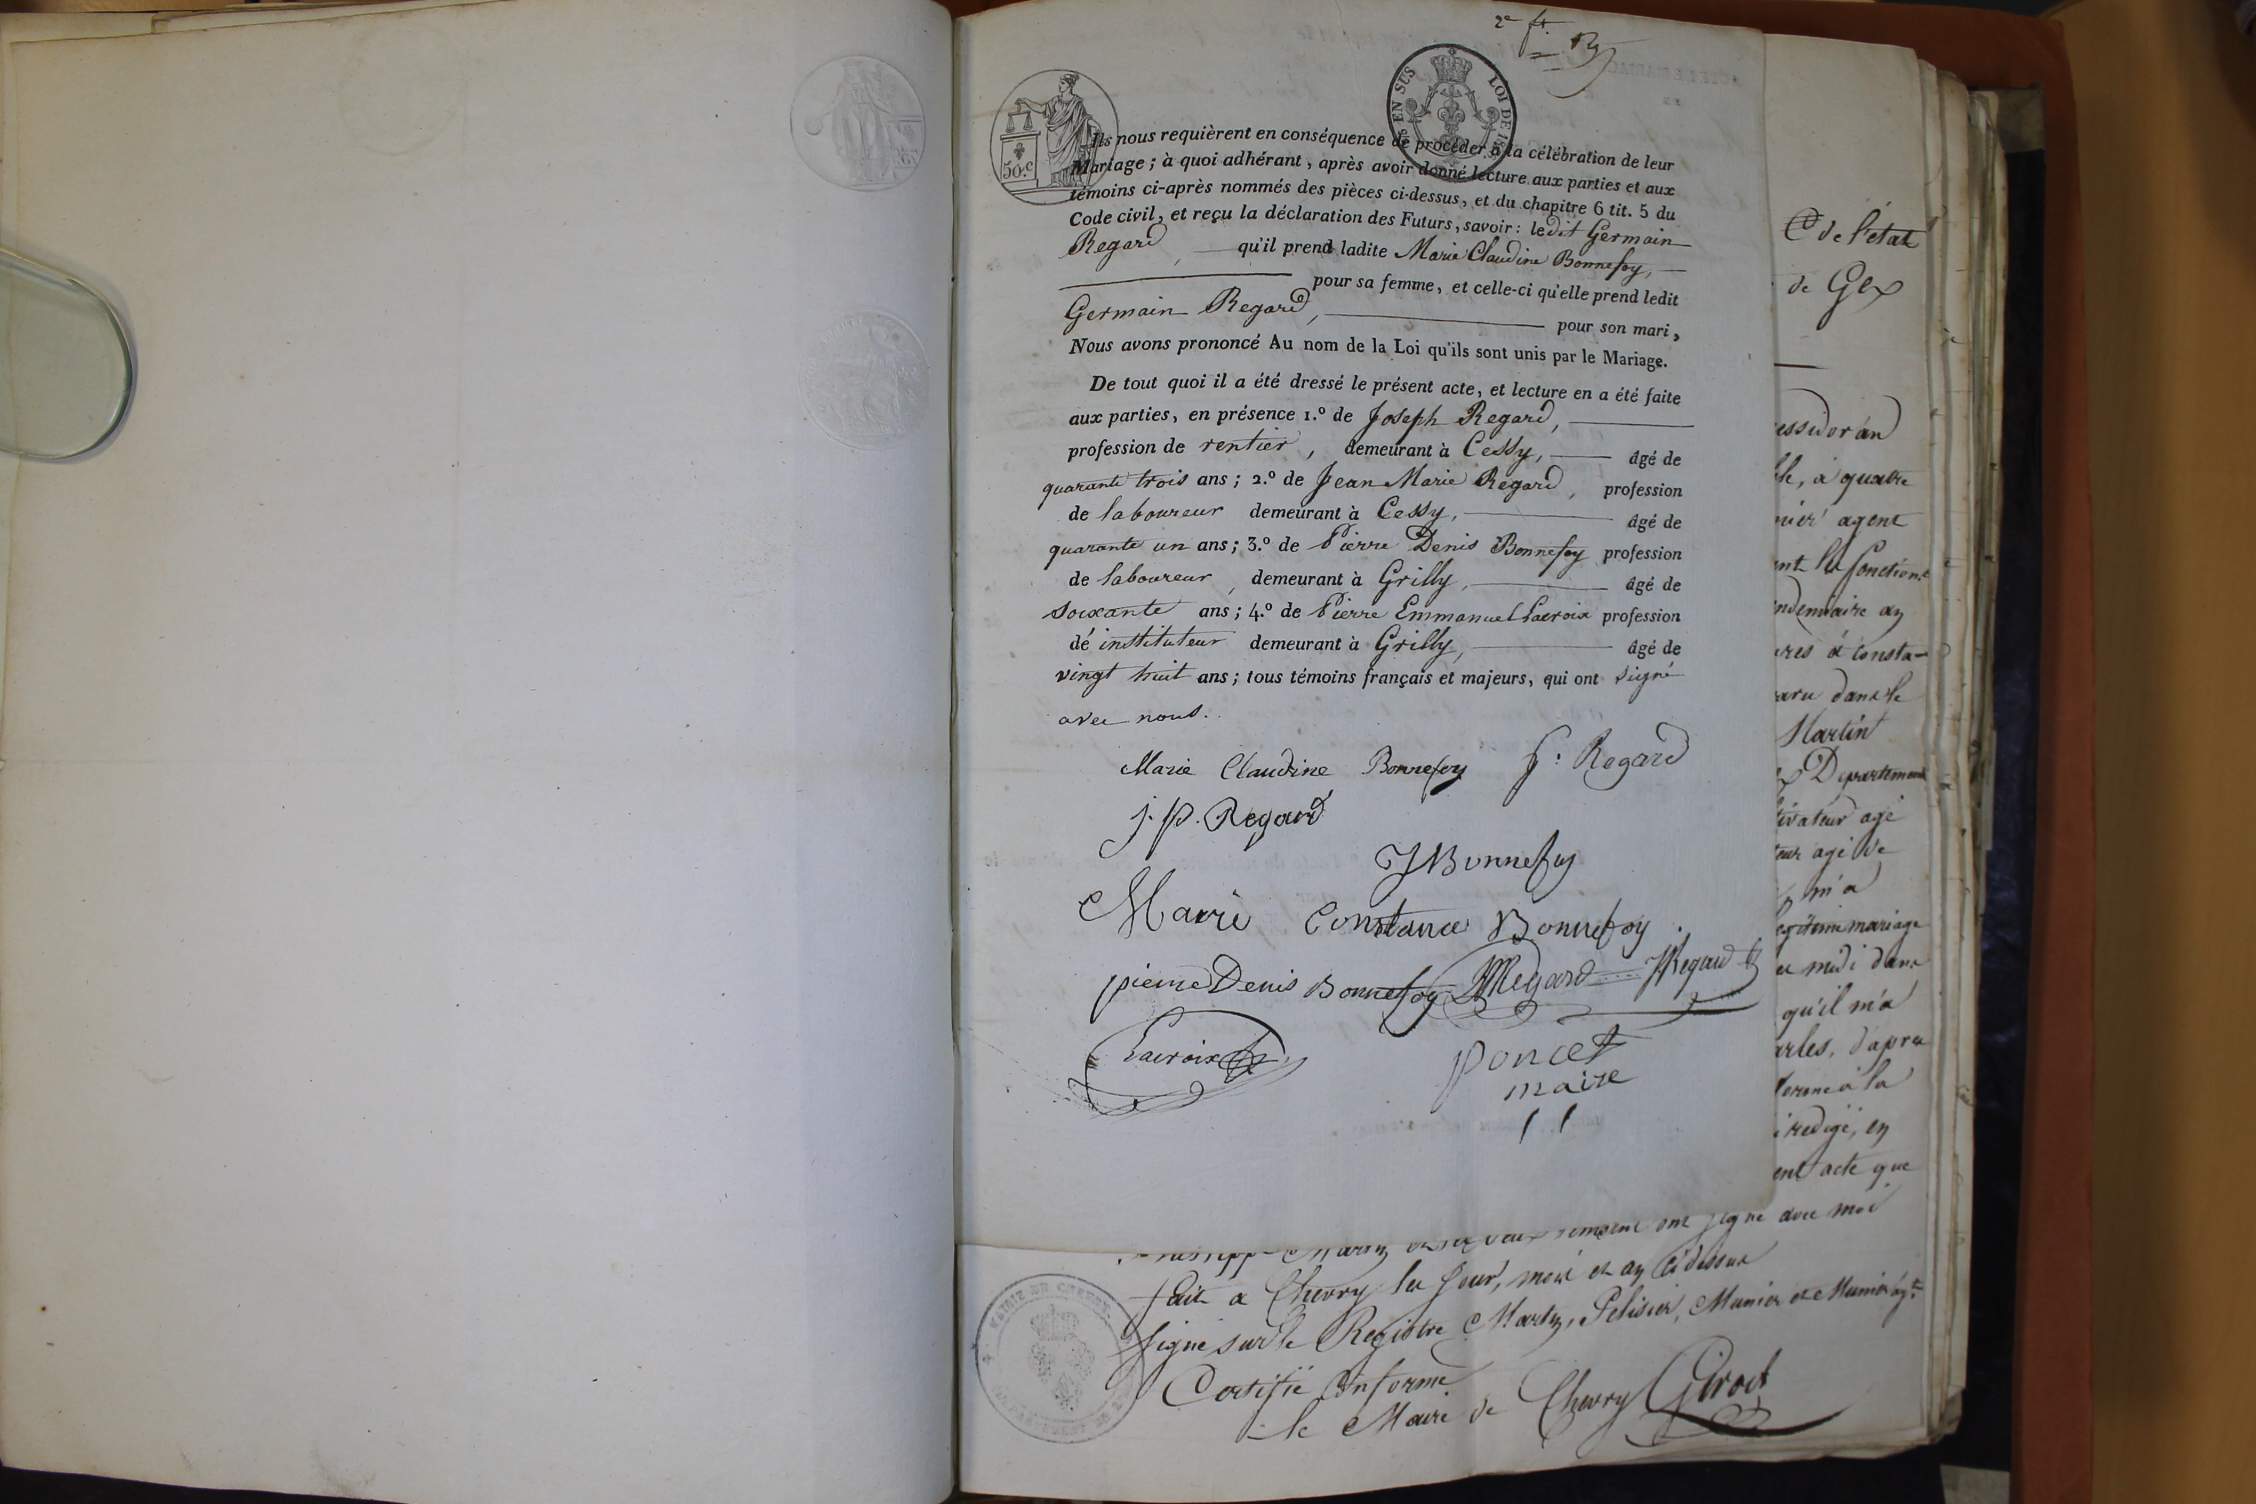 2e ft.
50.c
EN SUS
LOI DE
Ils nous requièrent en conséquence de procéder à la célébration de leur
Mariage; à quoi adhérant, après avoir donné lecture aux parties et aux
témoins ci-après nommés des pièces ci-dessus, et du chapitre 6 tit. 5 du
Code civil, et reçu la déclaration des Futurs, savoir: ledit Germain
Regard, qu'il prend ladite Marie Claudine Bonnefoy,
pour sa femme, et celle-ci qu'elle prend ledit
Germain Regard, pour son mari,
Nous avons prononcé Au nom de la Loi qu'ils sont unis par le Mariage.
De tout quoi il a été dressé le présent acte, et lecture en a été faite
aux parties, en présence 1.º de Joseph Regard,
profession de rentier, demeurant à Cessy, âgé de
quarante trois ans; 2.º de Jean Marie Regard, profession
de laboureur demeurant à Cessy, âgé de
quarante un ans; 3.º de Pierre Denis Bonnefoy profession
de laboureur, demeurant à Grilly, âgé de
soixante ans; 4.º de Pierre Emmanuel Lacroix profession
de instituteur demeurant à Grilly, âgé de
vingt huit ans; tous témoins français et majeurs, qui ont signé
avec nous.
Marie Claudine Bonnefoy G: Regard
j. p. Regard
JBonnefoy
Marie Constance Bonnefoy
pierre Denis Bonnefoy JMRegard JRegard
Lacroix
poncet
maire
C de l'état
de Gex
essidor an
à quatre
agent
fonctions
endemiaire an
res à consta-
aru dans le
Martin
Departement
tivateur agé
teur agé de
m'a
legitime mariage
midi dans
qu'il m'a
arles, d'apres
forme à la
redigé, en
ent acte que
ont signé avec moi
fait a Chevry les jour, mois et an ci dessus
signé sur le Registre Martin, Pelisier, Munier et Munier agt
Certifié Conforme
le Maire de Chevry Girod
MAIRIE DE CHEVRY